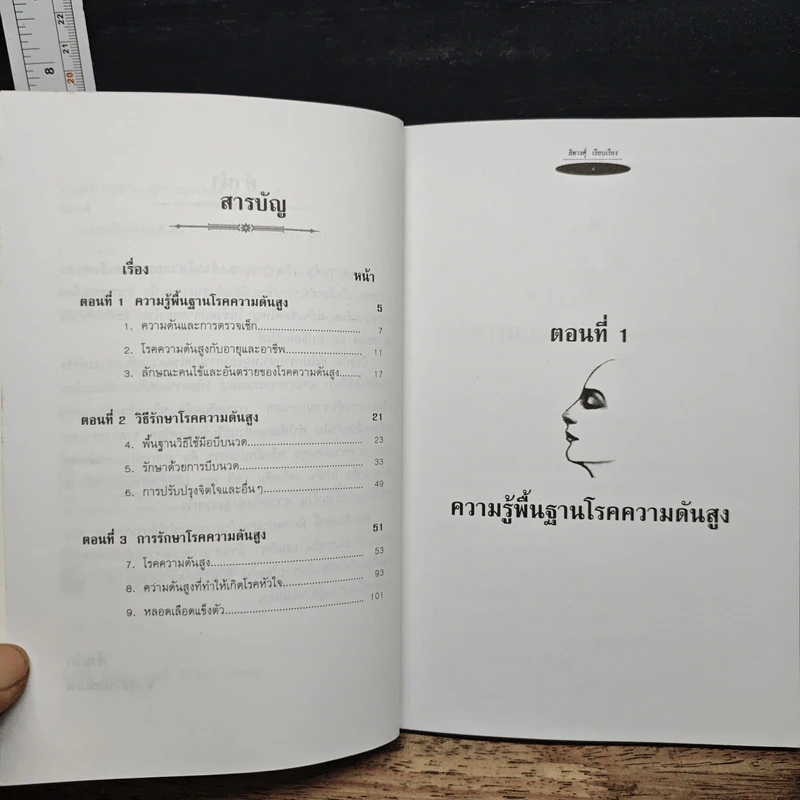 สารบัญ
เรื่อง หน้า
ตอนที่ 1 ความรู้พื้นฐานโรคความดันสูง 5
1. ความดันและการตรวจเช็ก 7
2. โรคความดันสูงกับอายุและอาชีพ 11
3. ลักษณะคนไข้และอันตรายของโรคความดันสูง 17
ตอนที่ 2 วิธีรักษาโรคความดันสูง 21
4. พื้นฐานวิธีใช้มือบีบนวด 23
5. รักษาด้วยการบีบนวด 33
6. การปรับปรุงจิตใจและอื่นๆ 49
ตอนที่ 3 การรักษาโรคความดันสูง 51
7. โรคความดันสูง 53
8. ความดันสูงที่ทำให้เกิดโรคหัวใจ 93
9. หลอดเลือดแข็งตัว 101
เรียบเรียง
5
ตอนที่ 1
ความรู้พื้นฐานโรคความดันสูง
8
22
21
20